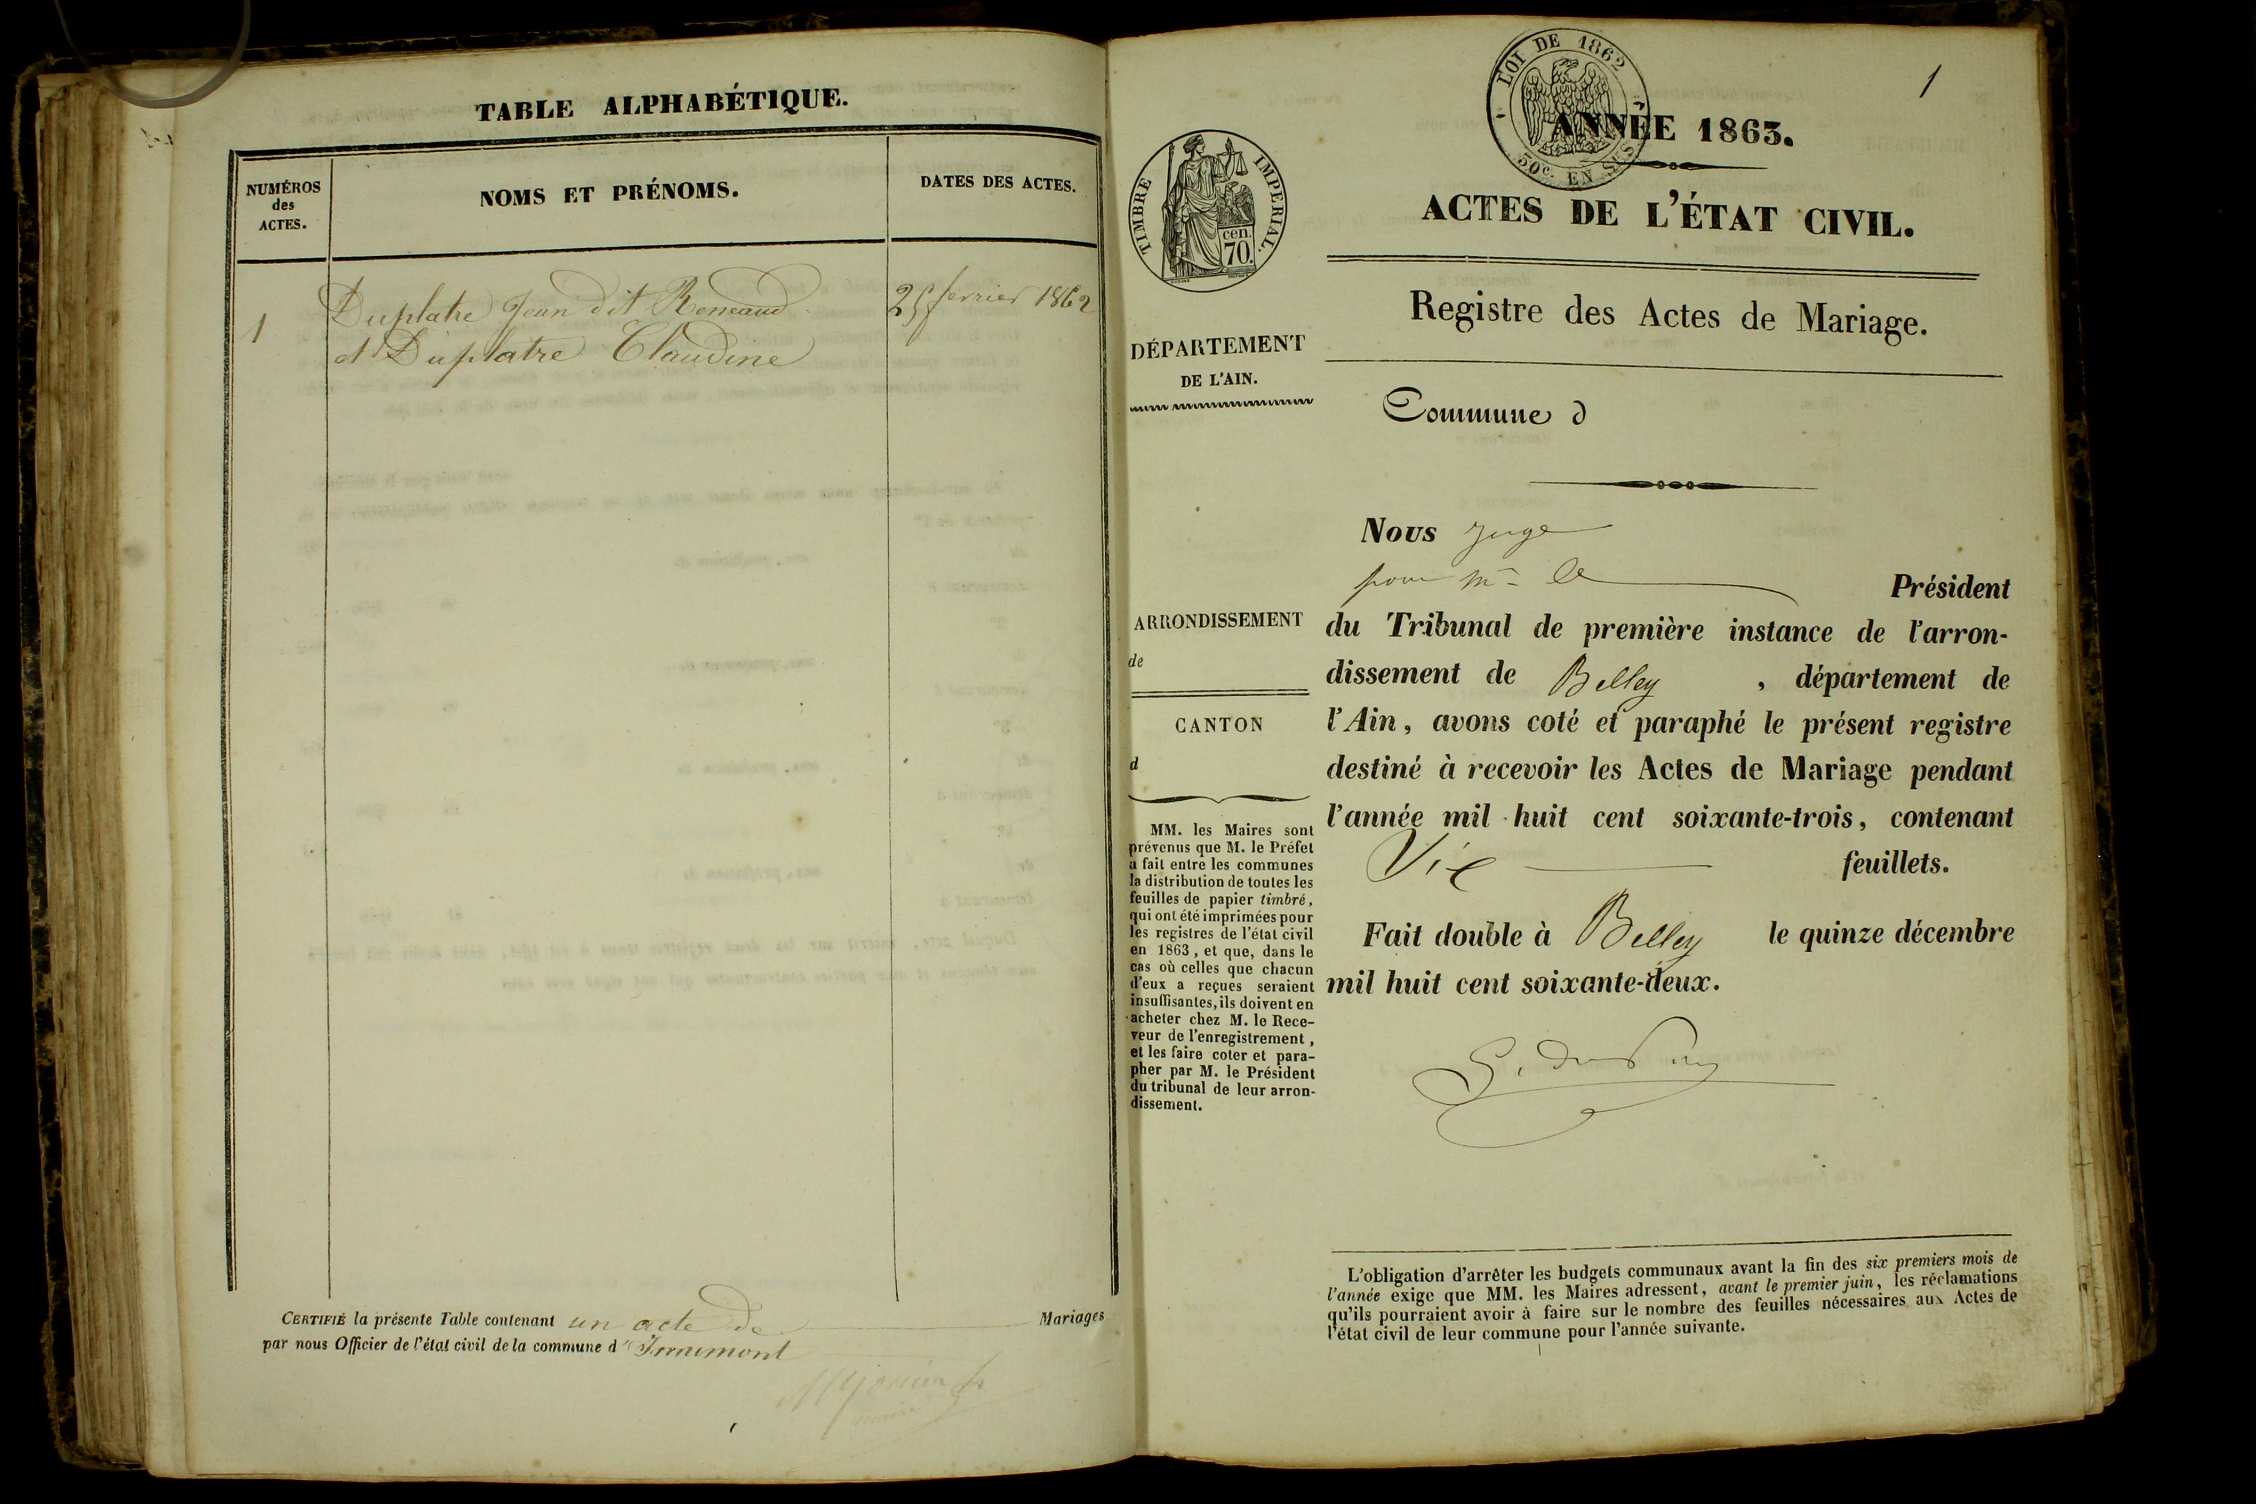 TABLE ALPHABÉTIQUE.
NUMÉROS
des
ACTES.
NOMS ET PRÉNOMS.
DATES DES ACTES.
1
Duplatre Jean dit Reneaud
25 fevrier 1862
et Duplatre Claudine
CERTIFIÉ la présente Table contenant un acte de Mariages
par nous Officier de l'état civil de la commune d'Innimont
maire
1
LOI DE 1862
50c. EN SUS
TIMBRE IMPERIAL.
cen.
70.
ANNÉE 1863.
ACTES DE L'ÉTAT CIVIL.
Registre des Actes de Mariage.
DÉPARTEMENT
DE L'AIN.
Commune d
ARRONDISSEMENT
de
CANTON
d
MM. les Maires sont
prévenus que M. le Préfet
a fait entre les communes
la distribution de toutes les
feuilles de papier timbré,
qui ont été imprimées pour
les registres de l'état civil
en 1863, et que, dans le
cas où celles que chacun
d'eux a reçues seraient
insuffisantes, ils doivent en
acheter chez M. le Rece-
veur de l'enregistrement,
et les faire coter et para-
pher par M. le Président
du tribunal de leur arron-
dissement.
Nous juge
pour Mr le Président
du Tribunal de première instance de l'arron-
dissement de Belley , département de
l'Ain, avons coté et paraphé le présent registre
destiné à recevoir les Actes de Mariage pendant
l'année mil huit cent soixante-trois, contenant
Six feuillets.
Fait double à Belley le quinze décembre
mil huit cent soixante-deux.
L'obligation d'arrêter les budgets communaux avant la fin des six premiers mois de
l'année exige que MM. les Maires adressent, avant le premier juin, les réclamations
qu'ils pourraient avoir à faire sur le nombre des feuilles nécessaires aux Actes de
l'état civil de leur commune pour l'année suivante.